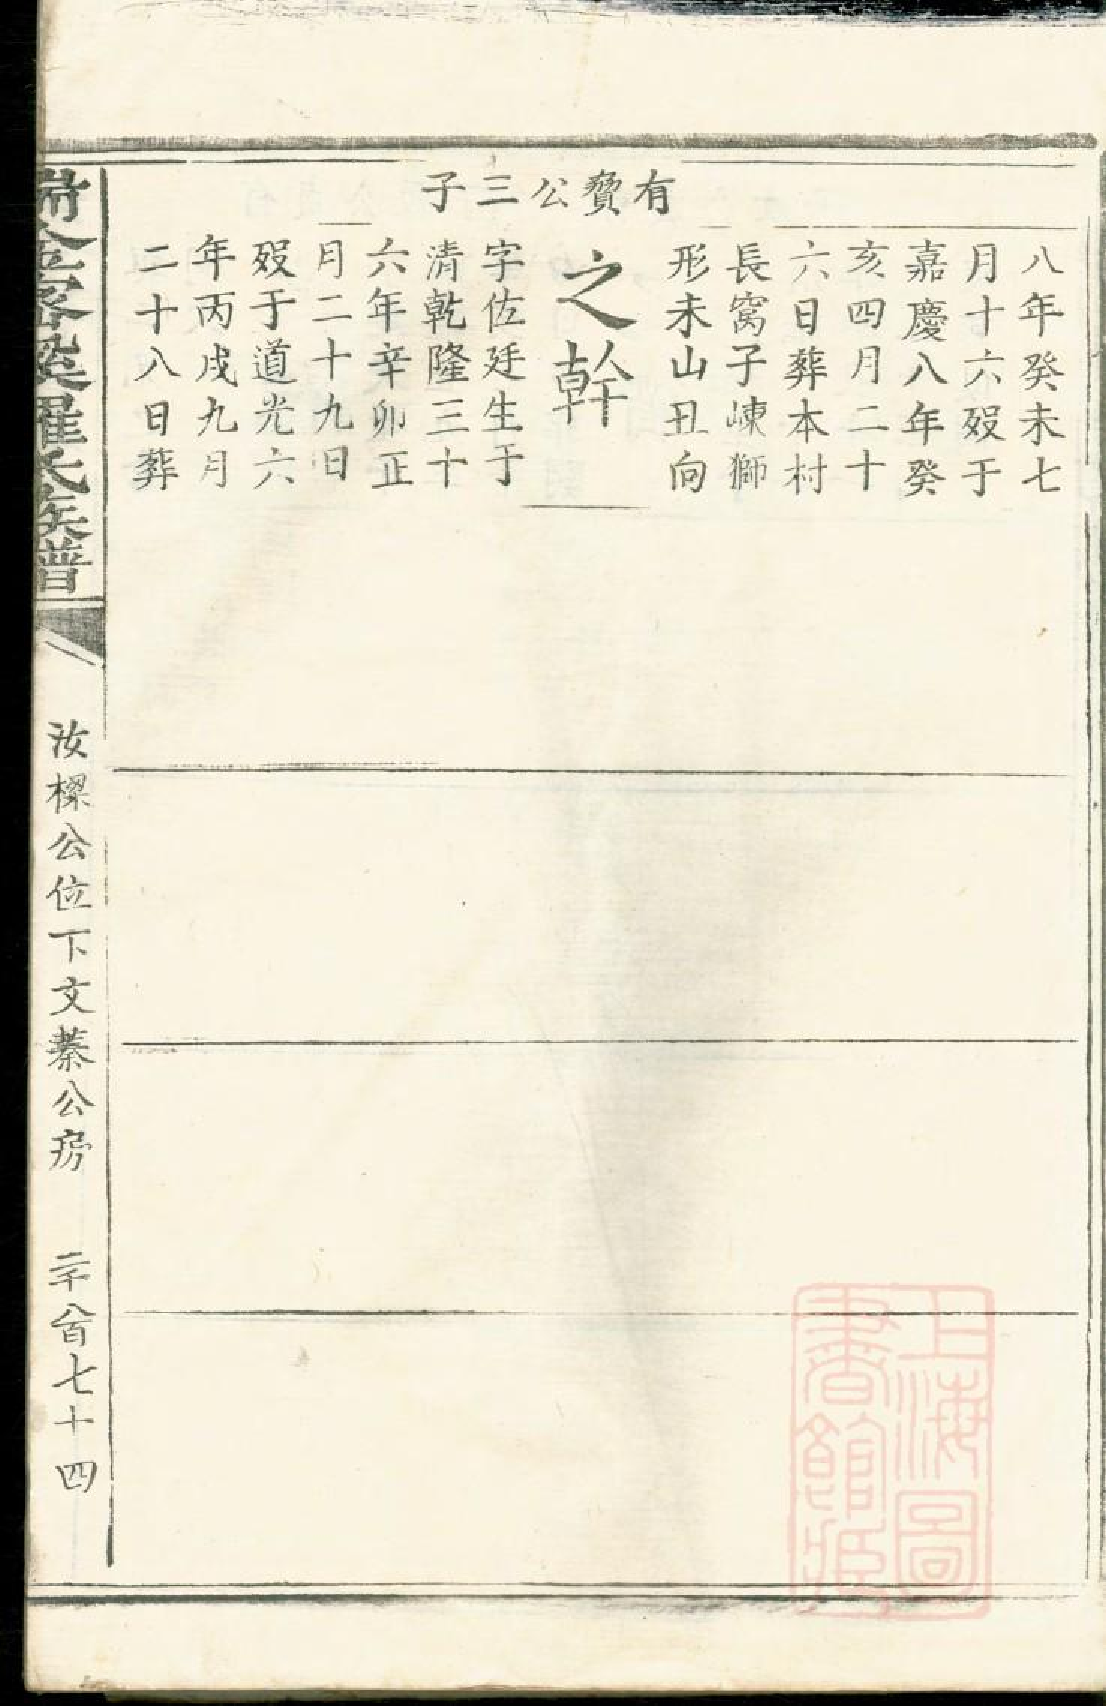 八年癸未七
月十六殁于
嘉慶八年癸
亥四月二十
六日葬本村
長窩子崠獅
形未山丑向
有贊公三子
之幹
字佐廷生于
清乾隆三十
六年辛卯正
月二十九日
殁于道光六
年丙戌九月
二十八日葬
羅氏族譜
汝樑公位下文綦公房
二千八百七十四
上海圖
書館藏